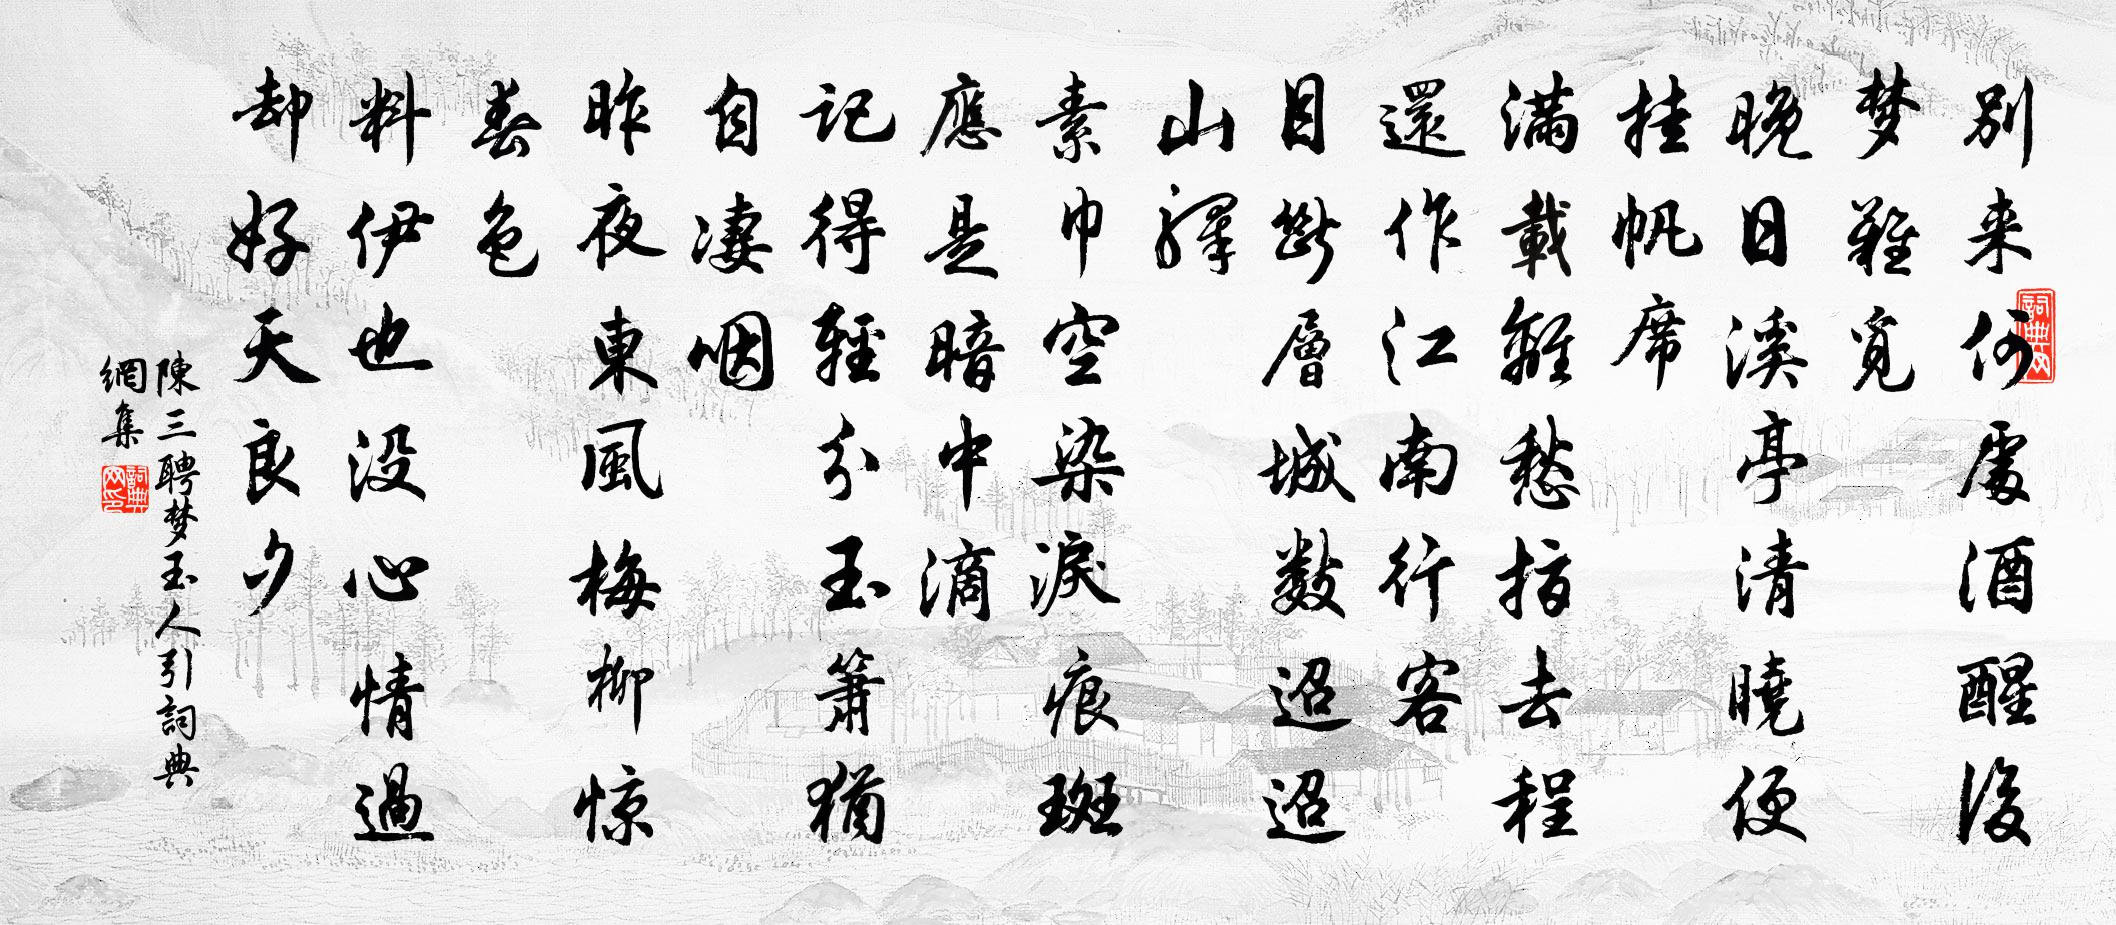 别来何處酒醒後
梦難覓
晚日溪亭清曉便
挂帆席
满載離愁指去程
還作江南行客
目断層城數迢迢
山驛
素巾空染淚痕斑
應是暗中滴
記得輕分玉箫猶
自凄咽
昨夜東風梅柳惊
春色
料伊也没心情過
却好天良夕
陳三聘梦玉人引詞典
網集
詞典网
詞典网印